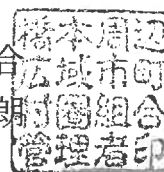 合
朗
橋本周辺
広域市町
村圏組合
管理者印